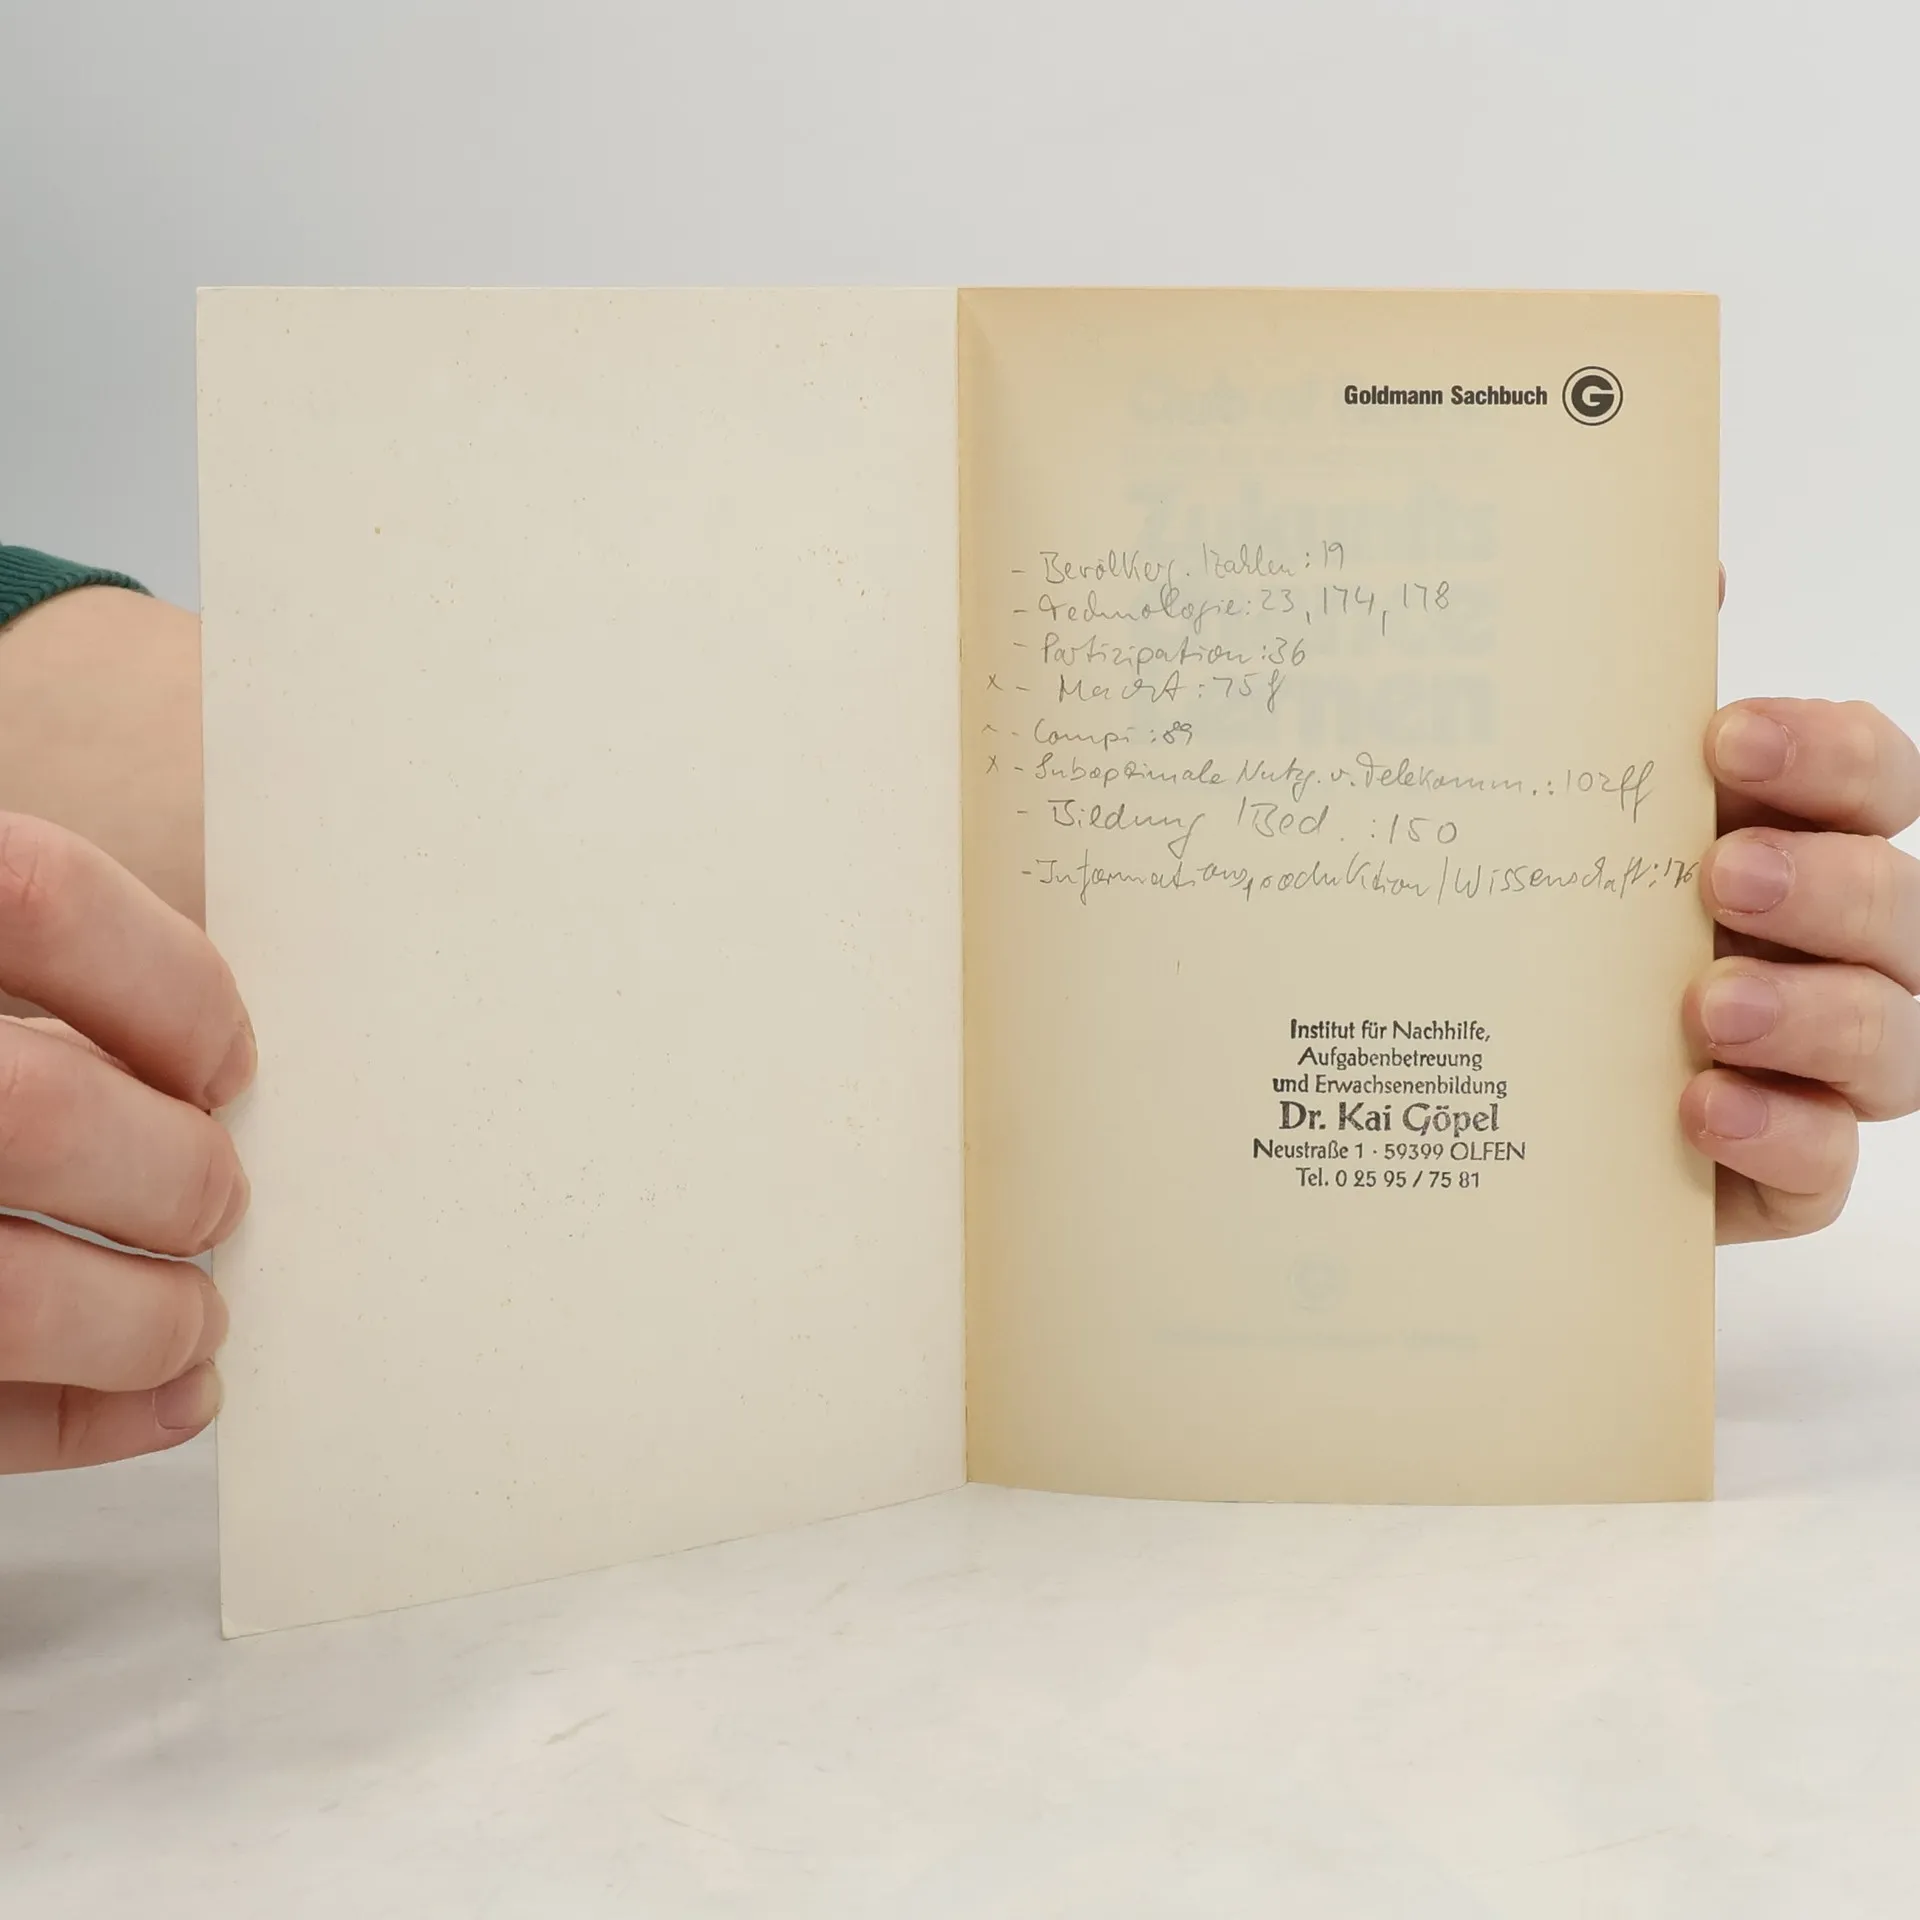 Goldmann Sachbuch G
- Bevölkerg. /zahlen : 19
- Technologie : 23, 174, 178
- Partizipation : 36
x - Macht : 75 f
- Compi : 89
x - Suboptimale Nutzg. v. Telekomm. : 102ff
- Bildung / Bed. : 150
- Informationsproduktion / Wissenschaft : 176
Institut für Nachhilfe,
Aufgabenbetreuung
und Erwachsenenbildung
Dr. Kai Göpel
Neustraße 1 · 59399 OLFEN
Tel. 0 25 95 / 75 81